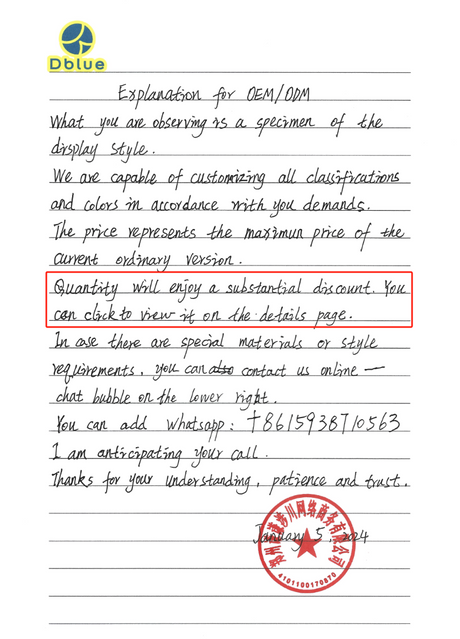 Dblue
Explanation for OEM/ODM
What you are observing is a specimen of the
display style.
We are capable of customizing all classifications
and colors in accordance with you demands.
The price represents the maximun price of the
current ordinary version.
Quantity will enjoy a substantial discount. You
can click to view it on the details page.
In case there are special materials or style
requirements, you can also contact us online —
chat bubble on the lower right.
You can add whatsapp: +8615938710563
I am anticipating your call.
Thanks for your understanding, patience and trust.
January 5, 2024
川网络商务有限公司
4101100170870